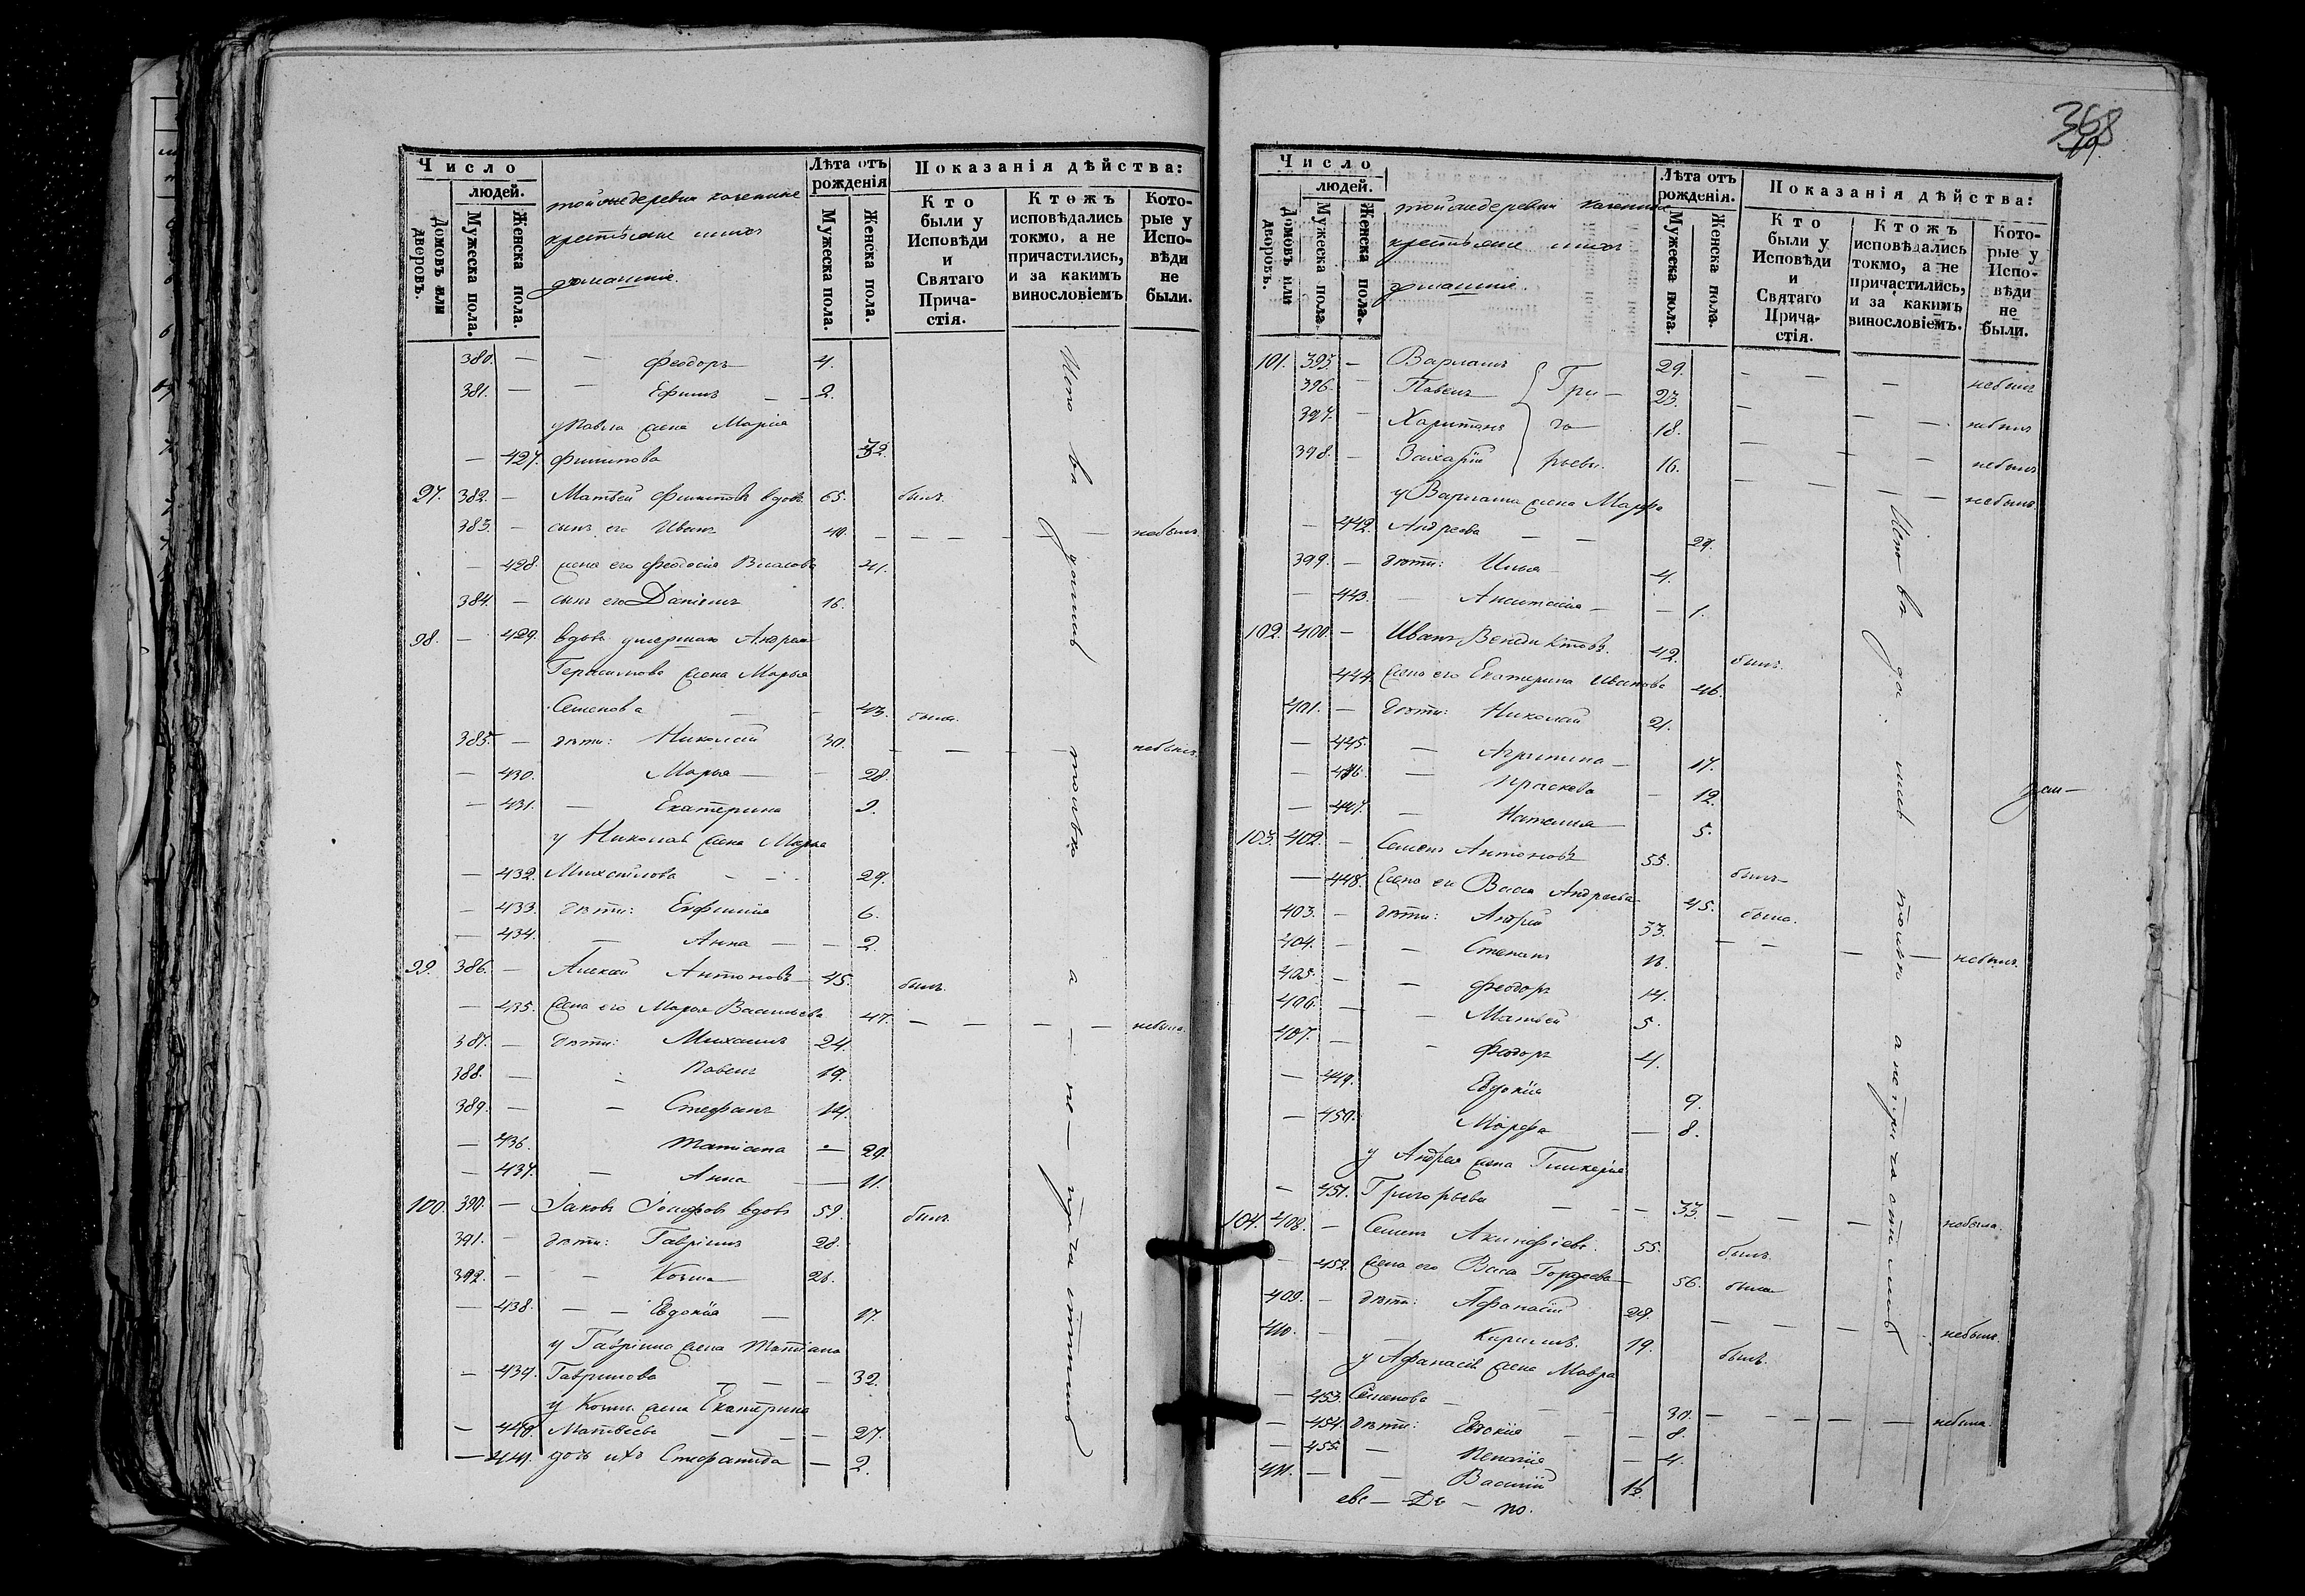 368
Число
людей.
Домовъ или дворовъ.
Мужеска пола.
Женска пола.
тойже деревни казенные
крестьяне и ихъ
домашніе.
Лѣта отъ рожденія
Мужеска пола.
Женска пола.
Показанія дѣйства:
Кто были у Исповѣди и Святаго Причастія.
Ктожъ исповѣдались токмо, а не причастились, и за какимъ винословіемъ
Которые у Исповѣди не были.
380. — — Феодоръ 4.
381. — — Ефимъ — 2.
у Павла жена Марія
— 427. Филипова 32.
97. 382. — Матвей Филиповъ вдовъ 65. былъ.
383. — сынъ его Иванъ 40. — — — — — небылъ.
— 428. жена его Феодосія Власова 41.
384. — сынъ его Даніилъ 16.
98. — 429. вдова умершаго Андрея
Герасимова жена Марья
Семенова — — 43. была.
385. — дѣти: Николай 30. — — — — небылъ.
— 430. Марья — — 28.
— 431. — Екатерина 9.
у Николая жена Марья
— 432. Михайлова — — 29.
— 433. дѣти: Евфимія 6.
— 434. — Анна — — 2.
99. 386. — Алексѣй Антоновъ 45. былъ.
— 435. жена его Марья Васильева 47. — — — — небыла.
387. — дѣти: Михаилъ 24.
388. — — Павелъ 19.
389. — — Стефанъ 14.
— 436. Татіана — 20.
— 437. — Анна — 11.
100. 390. — Іаковъ вдовъ 59. былъ.
391. — дѣти: Гавріилъ 28.
392. — — Козма 26.
— 438. — — Евдокія — 17.
у Гавріила жена Татіана
— 439. Гаврилова — — — 32.
у Козмы жена Екатерина
— 440. Матвѣева — — — 27.
— 441. дочь ихъ Стефанида — 2.
а — не — причастился
Число
людей.
Домовъ или дворовъ.
Мужеска пола.
Женска пола.
тойже деревни казенные
крестьяне и ихъ
домашніе.
Лѣта отъ рожденія.
Мужеска пола.
Женска пола.
Показанія дѣйства:
Кто были у Исповѣди и Святаго Причастія.
Ктожъ исповѣдались токмо, а не причастились, и за какимъ винословіемъ.
Которые у Исповѣди не были.
101. 395. — Варлаамъ 29. — — — небылъ
396. — Павелъ Гри— 23. — — небылъ
397. — Харитонъ го— 18. — — — небылъ
398. — Захарій рьевы. 16. — — — — небылъ.
у Варлаама жена Марфа
— 442. Андреева — — 29.
399. — дѣти: Илья 4.
— 443. — Анастасія — — 1.
102. 400. — Иванъ Бенедиктовъ. 42. былъ.
444. жена его Екатерина Иванова 46.
401. — дѣти: Николай 21.
— 445. — Агрипина — 17.
— 446. — Праскева — 12.
— 447. — Наталия 5.
103. 402. — Семенъ Антоновъ 55. былъ
— 448. жена его Васса Андреева 45. была.
403. — дѣти: Андрей 33. — — — — небылъ.
404. — — Степанъ 18.
405. — — Феодоръ 14.
406. — — Матвей 5.
407. — — Феодоръ 4.
— 449. Евдокія 9.
— 450. Марфа — 8.
у Андрея жена Гликерія
— 451. Григорьева — — — 33. — — — небыла.
104. 408. — Семенъ Акинфіевъ. 55. былъ.
— 452. жена его Васса Гордеева 56. была
409. — дѣти: Афанасій 29. — — — небылъ.
410. — — Кирилъ. 19. былъ.
у Афанасія жена Мавра
— 453. Семенова — — — 30. — — — — небыла.
— 454. дѣти: Евдокія — — 8.
— 455. — — 4.
411. — — Василій 13.
а не причастилась